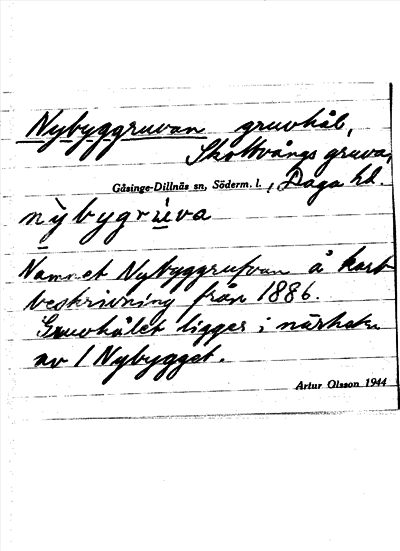 Nybyggruvan gruvhål,
Skottvångs gruva,
Gåsinge-Dillnäs sn, Söderm. l., Daga hd.
nybygruva
Namnet Nybyggrufvan å kart
beskrivning från 1886.
Gruvhålet ligger i närheten
av / Nybygget.
Artur Olsson 1944